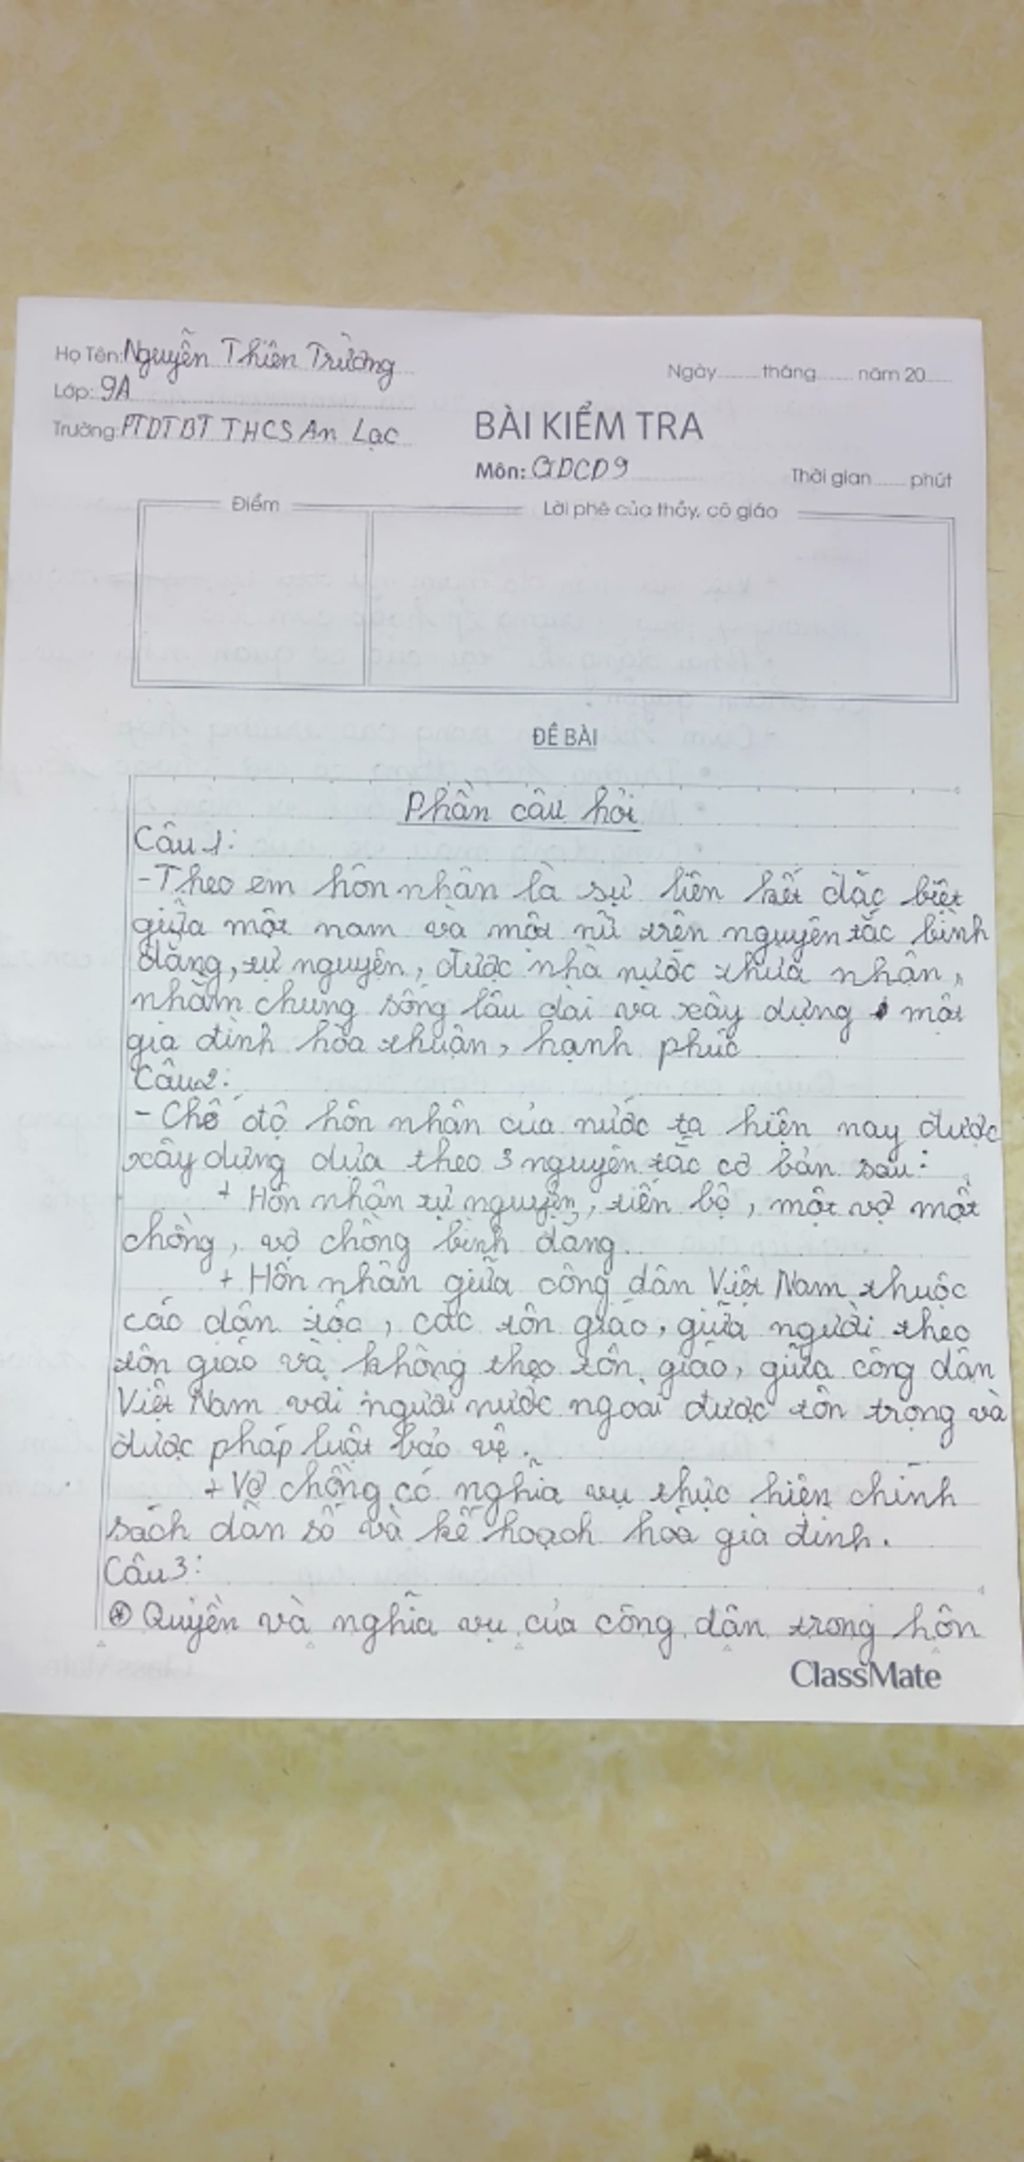 Họ Tên: Nguyễn Thiên Trường
Ngày........tháng........năm 20.....
Lớp: 9A
Trường: PTDTBT THCS An Lạc
BÀI KIỂM TRA
Môn: GDCD9
Thời gian......phút
Điểm
Lời phê của thầy, cô giáo
ĐỀ BÀI
Phần câu hỏi
Câu 1:
- Theo em hôn nhân là sự liên kết đặc biệt
giữa một nam và một nữ trên nguyên tắc bình
đẳng, tự nguyện, được nhà nước thừa nhận,
nhằm chung sống lâu dài và xây dựng một
gia đình hòa thuận, hạnh phúc
Câu 2:
- Chế độ hôn nhân của nước ta hiện nay được
xây dựng dựa theo 3 nguyên tắc cơ bản sau:
+ Hôn nhân tự nguyện, tiến bộ, một vợ một
chồng, vợ chồng bình đẳng.
+ Hôn nhân giữa công dân Việt Nam thuộc
các dân tộc, các tôn giáo, giữa người theo
tôn giáo và không theo tôn giáo, giữa công dân
Việt Nam với người nước ngoài được tôn trọng và
được pháp luật bảo vệ.
+ Vợ chồng có nghĩa vụ thực hiện chính
sách dân số và kế hoạch hoá gia đình.
Câu 3:
* Quyền và nghĩa vụ của công dân trong hôn
ClassMate